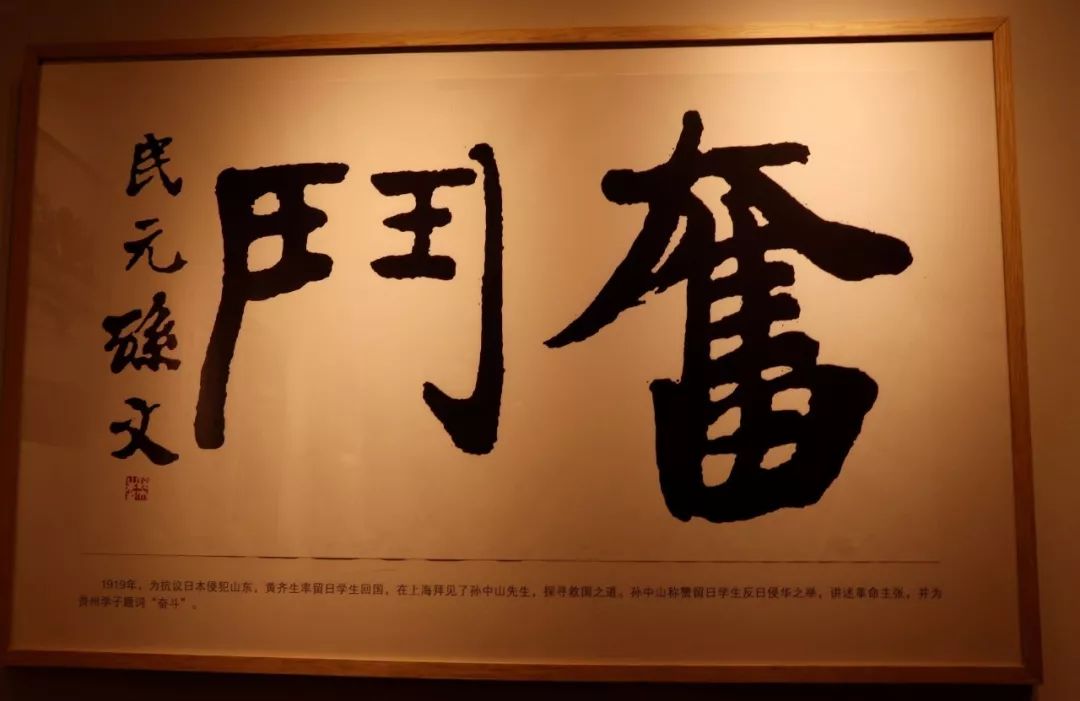 奮鬥
民元孫文
1919年，为抗议日本侵犯山东，黄齐生率留日学生回国，在上海拜见了孙中山先生，探寻救国之道。孙中山称赞留日学生反日侵华之举，讲述革命主张，并为
贵州学子题词“奋斗”。